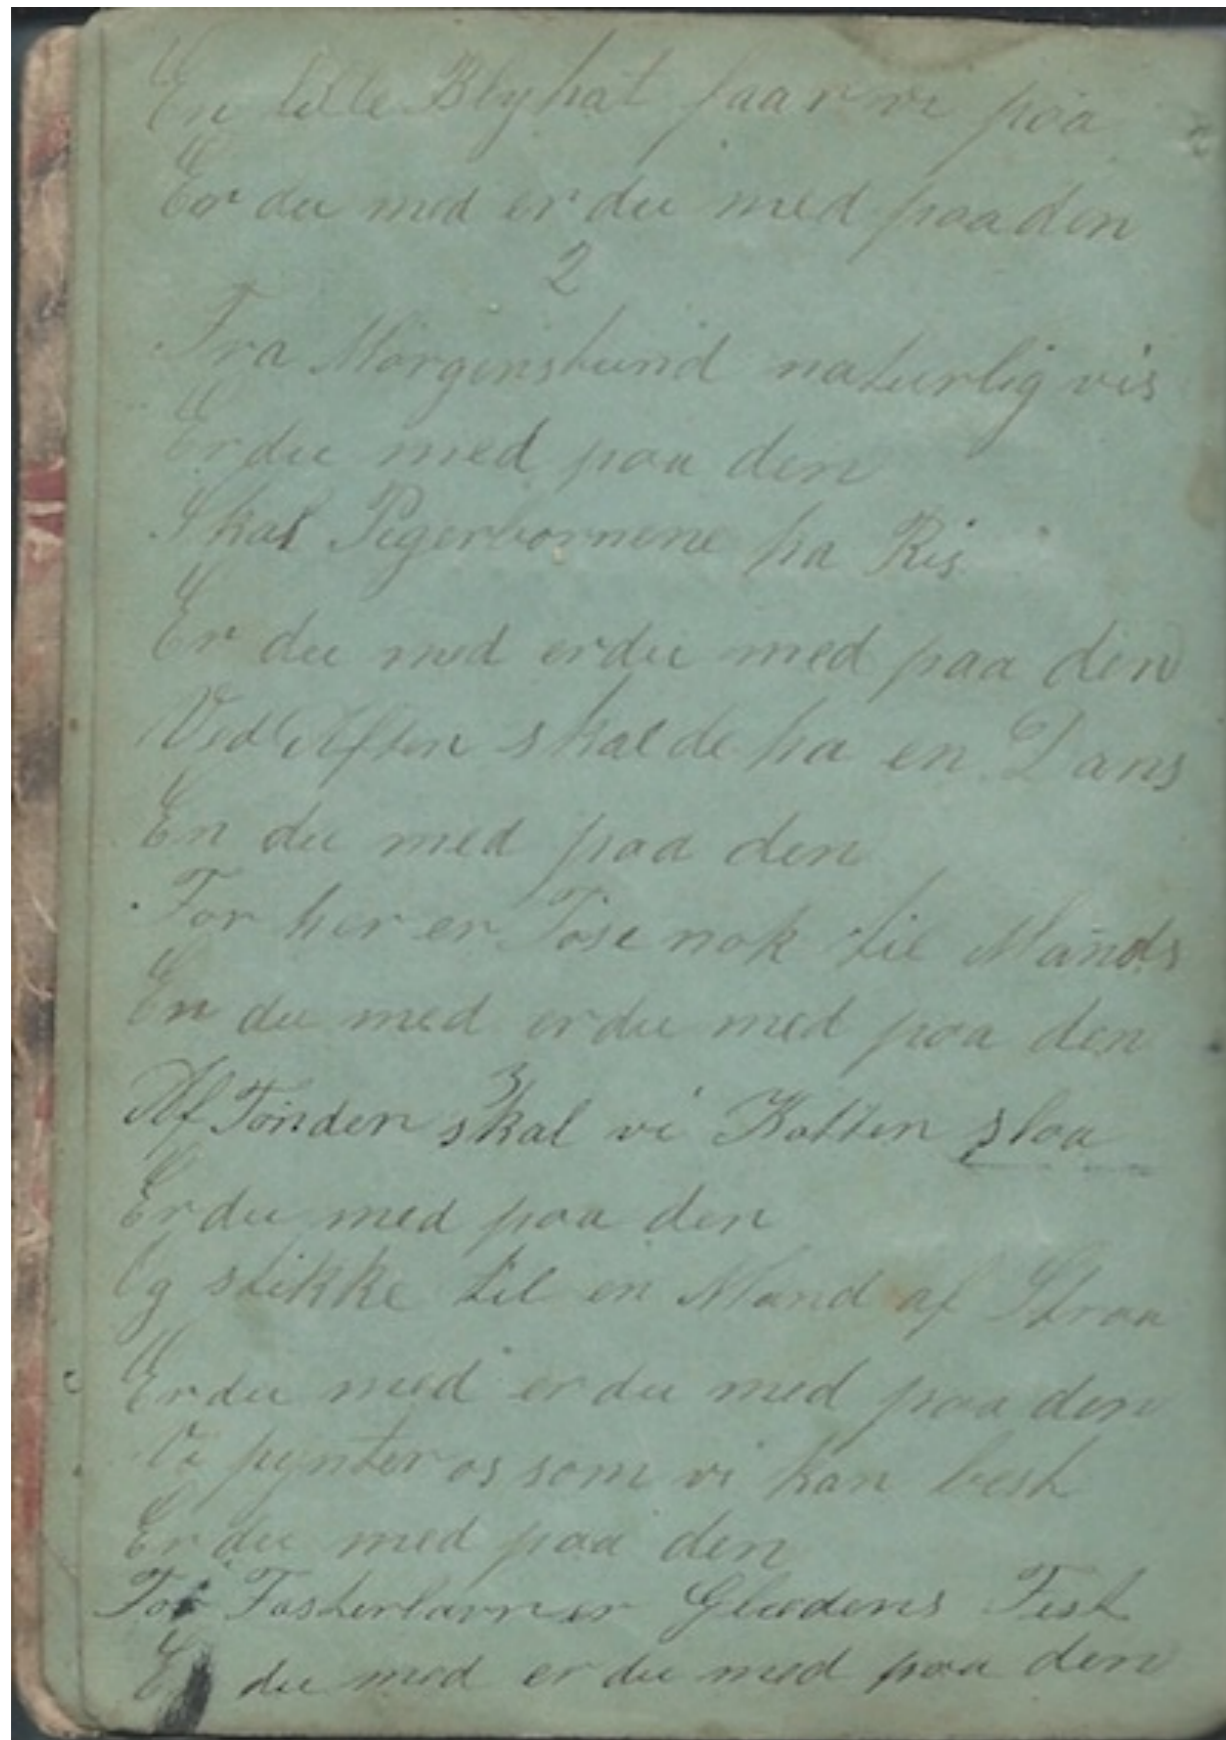 En lille Blyhat faar vi paa
Er du med er du med paa den
2
Fra Morgenstund naturlig vis
Er du med paa den
Skal Pigerbornene ha Ris
Er du med er du med paa den
Ved Aften skal de ha en Dans
En du med paa den
For her er Tøse nok til Mands
En du med er du med paa den
3
Af Tønden skal vi Katten slaa
Er du med paa den
Og stikke til en Mand af Straa
Er du med er du med paa den
Vi pynter os som vi kan best
Er du med paa den
For Fasterlavn er Glædens Fest
Er du med er du med paa den